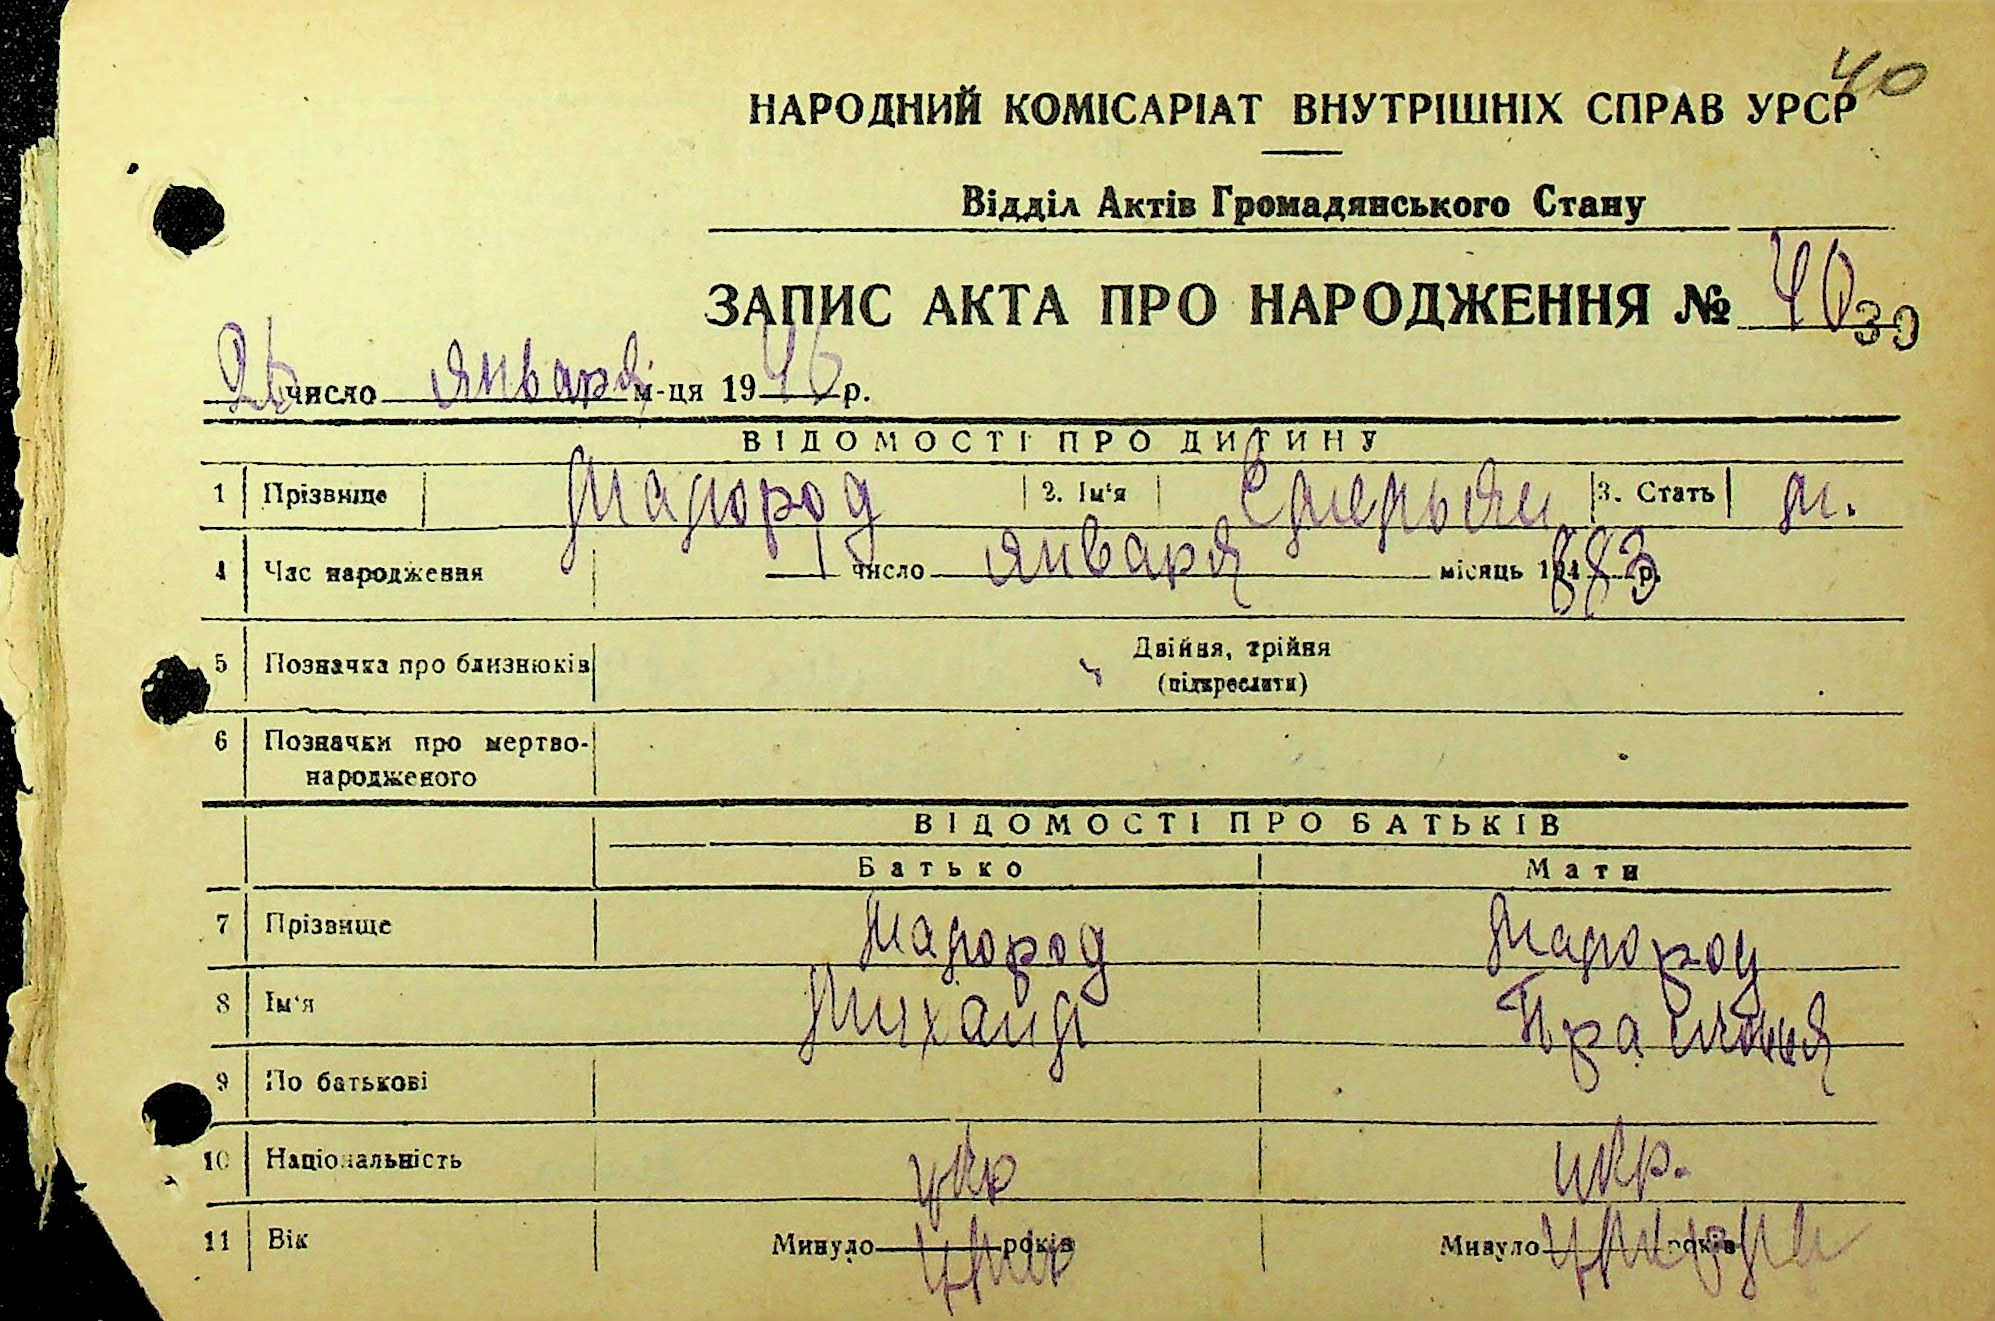 40
НАРОДНИЙ КОМІСАРІАТ ВНУТРІШНІХ СПРАВ УРСР
Відділ Актів Громадянського Стану
ЗАПИС АКТА ПРО НАРОДЖЕННЯ № 40 39
число января м-ця 1946 р.
ВІДОМОСТІ ПРО ДИТИНУ
1 Прізвище Магород 2. Ім'я Емельян 3. Стать м.
4 Час народження 1 число января місяць 1883 р.
5 Позначка про близнюків Двійня, трійня
(підкреслити)
6 Позначки про мертво-
народженого
ВІДОМОСТІ ПРО БАТЬКІВ
Батько Мати
7 Прізвище Магород Магород
8 Ім'я Михаил
9 По батькові
10 Національність укр укр.
11 Вік Минуло років умер Минуло років умерла